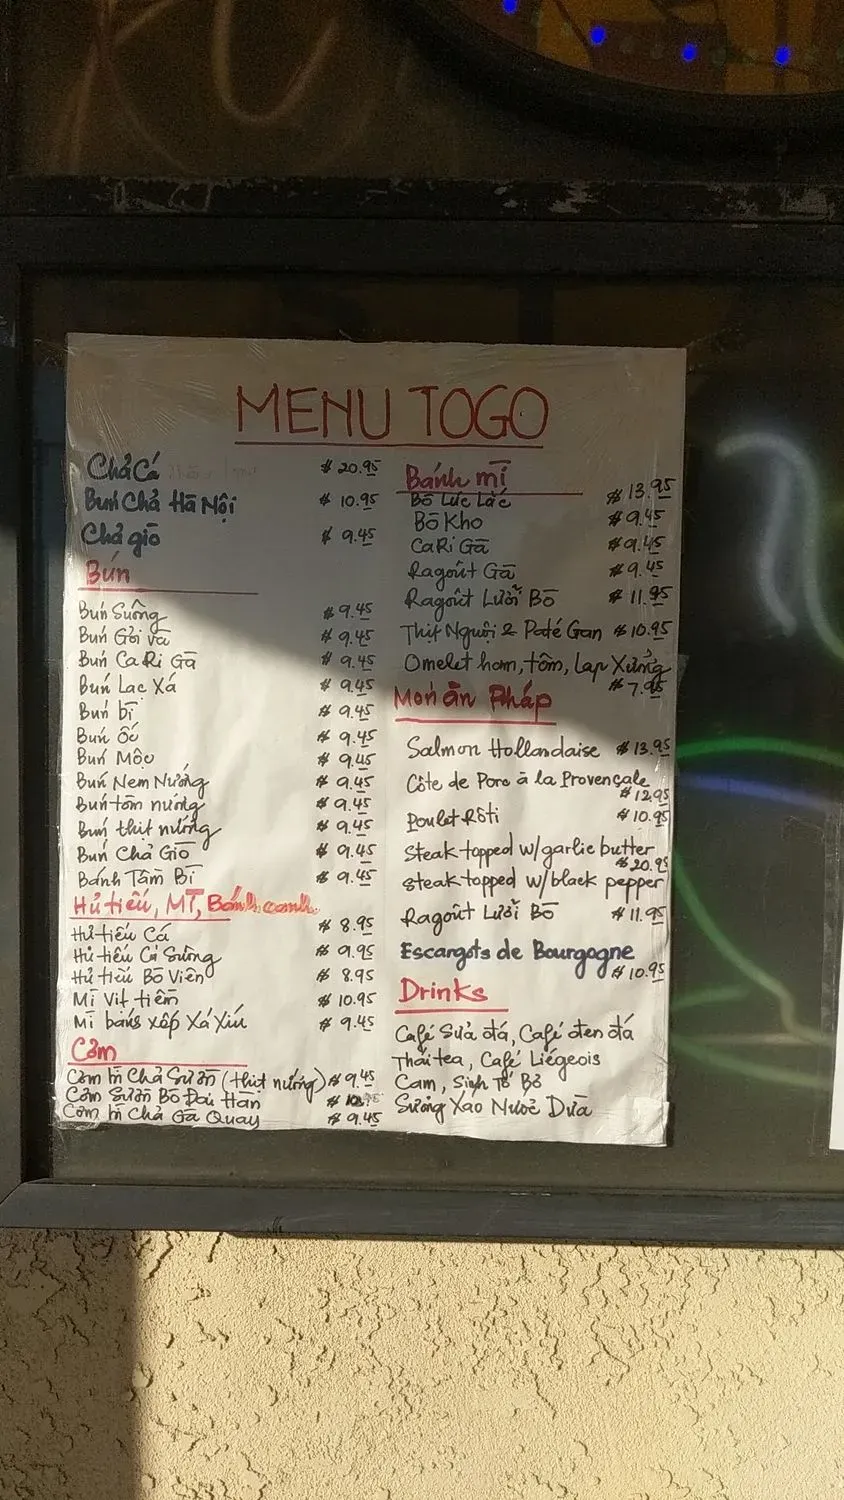 MENU TOGO
Chả Cá $ 20.95
Bún Chả Hà Nội $ 10.95
Chả giò $ 9.45
Bún
Bún Suông $ 9.45
Bún Gỏi và $ 9.45
Bún Ca Ri Gà $ 9.45
Bún Lac Xá $ 9.45
Bún bì $ 9.45
Bún Ốc $ 9.45
Bún Mộc $ 9.45
Bún Nem Nướng $ 9.45
Bún tôm nướng $ 9.45
Bún thịt nướng $ 9.45
Bún Chả Giò $ 9.45
Bánh Tầm Bì $ 9.45
Hủ tiếu, Mì, Bánh canh
Hủ tiếu Cá $ 8.95
Hủ tiếu Cá Suông $ 9.95
Hủ tiếu Bò Viên $ 8.95
Mì Vịt tiềm $ 10.95
Mì Xá Xíu $ 9.45
Cơm
Cơm bì Chả Sườn (thịt nướng) $ 9.45
Cơm Sườn Bò Đại Hàn $
Cơm bì Chả Gà Quay $ 9.45
Bánh mì
Bò Lúc Lắc $ 13.95
Bò Kho $ 9.45
Ca Ri Gà $ 9.45
Ragoût Gà $ 9.45
Ragoût Lưỡi Bò $ 11.95
Thịt Nguội & Paté Gan $ 10.95
Omelet ham, tôm, Lap Xưởng
$ 7.95
Món ăn Pháp
Salmon Hollandaise $ 13.95
Côte de Porc à la Provençale
$ 12.95
Poulet Rôti $ 10.95
Steak topped w/garlic butter
$ 20.95
steak topped w/black pepper
Ragoût Lưỡi Bò $ 11.95
Escargots de Bourgogne
$ 10.95
Drinks
Café Sửa đá, Café đen đá
Thái tea, Café Liégeois
Cam, Sinh Tố Bơ
Sương Xáo Nước Dừa